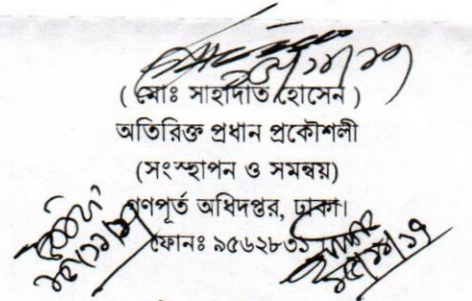 ( মোঃ সাহাদাত হোসেন )
অতিরিক্ত প্রধান প্রকৌশলী
(সংস্হাপন ও সমন্বয়)
গণপূর্ত অধিদপ্তর, ঢাকা।
ফোনঃ ৯৫৬২৮৩১